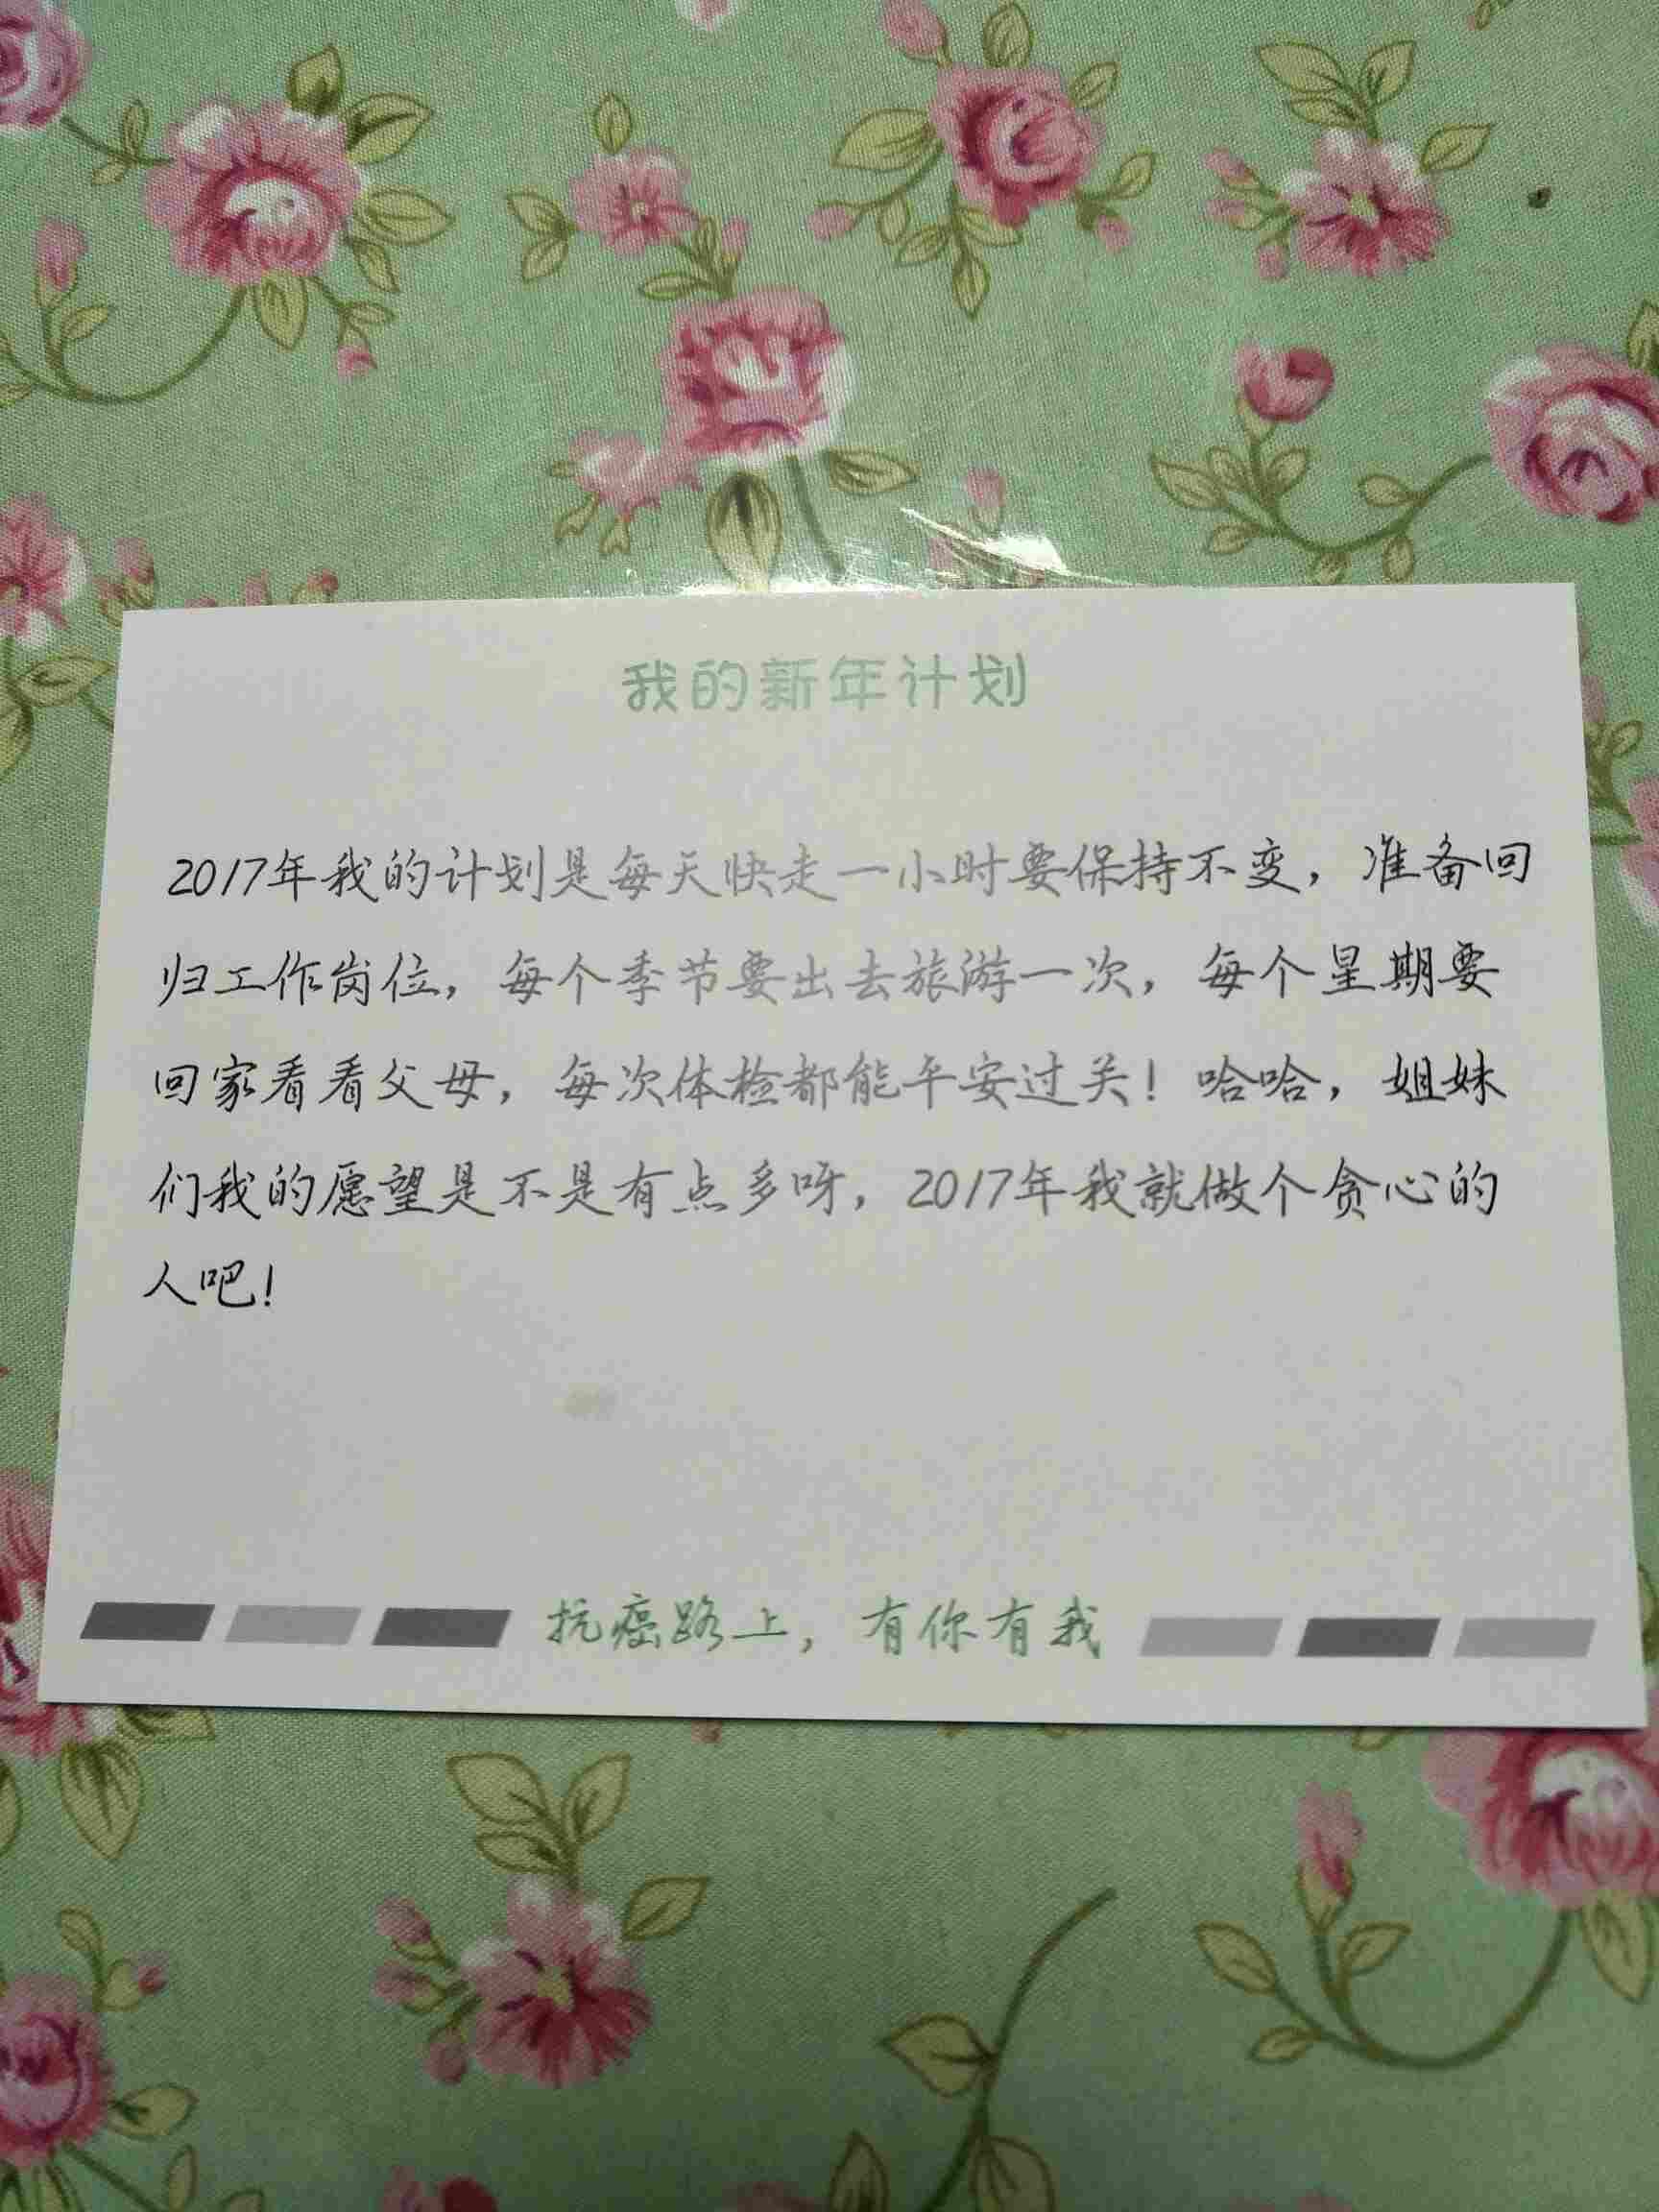 我的新年计划
2017年我的计划是每天快走一小时要保持不变，准备回
归工作岗位，每个季节要出去旅游一次，每个星期要
回家看看父母，每次体检都能平安过关！哈哈，姐妹
们我的愿望是不是有点多呀，2017年我就做个贪心的
人吧！
抗癌路上，有你有我